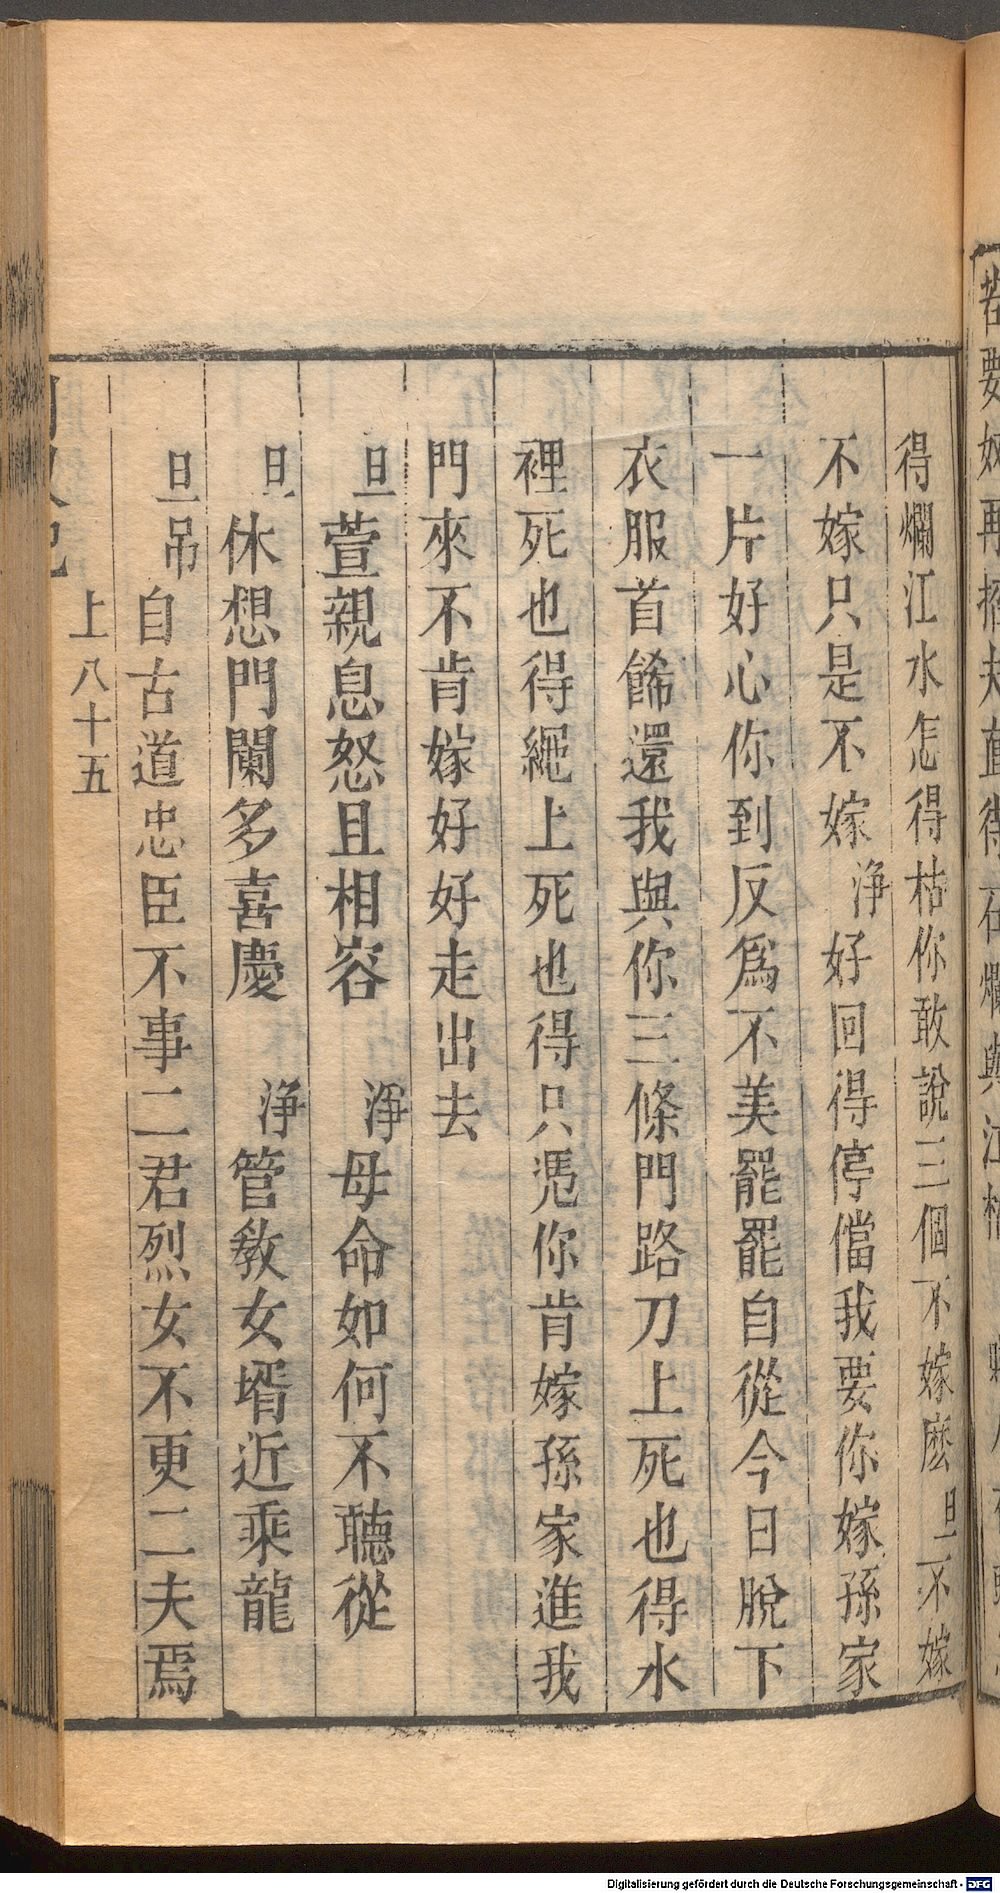 得爛江水怎得枯你敢說三個不嫁麽旦不嫁
不嫁只是不嫁淨好回得停儅我要你嫁孫家
一片好心你到反爲不美罷罷自從今日脫下
衣服首餙還我與你三條門路刀上死也得水
裡死也得繩上死也得只憑你肯嫁孫家進我
門來不肯嫁好好走出去
旦萱親息怒且相容 淨母命如何不聽從
旦休想門闌多喜慶 淨管教女壻近乘龍
旦吊自古道忠臣不事二君烈女不更二夫焉
上 八十五
Digitalisierung gefördert durch die Deutsche Forschungsgemeinschaft - DFG